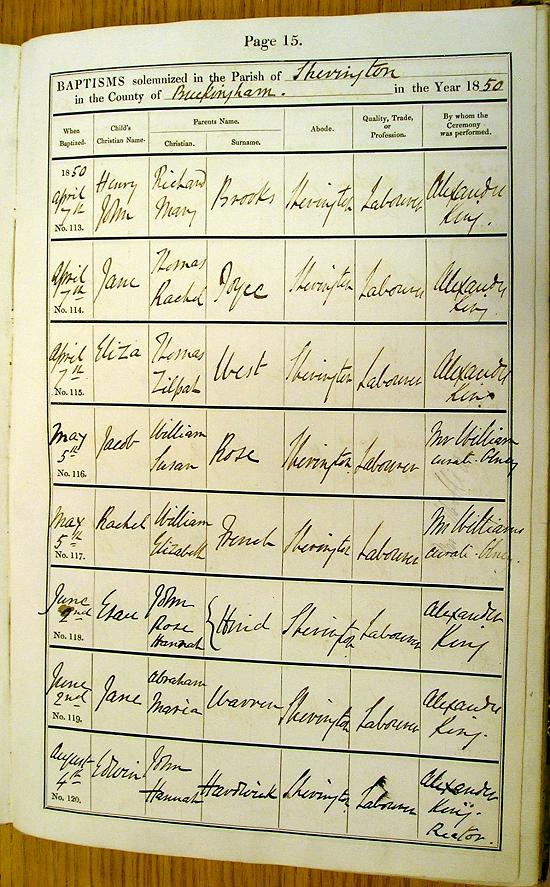 Page 15.
BAPTISMS solemnized in the Parish of Shevington
in the County of Buckingham. in the Year 1850
When Baptized. Child's Christian Name. Parents Name. Christian. Surname. Abode. Quality, Trade, or Profession. By whom the Ceremony was performed.
1850
April 7th Henry John Richard Mary Brooks Shevington Labourer Alexander King.
No. 113.
April 7th Jane Thomas Rachel Joyce Shevington Labourer Alexander King
No. 114.
April 7th Eliza Thomas Zilpah West Shevington Labourer Alexander King
No. 115.
May 5th Jacob William Susan Rose Shevington Labourer Mr William curate Olney
No. 116.
May 5th Rachel William Elizabeth French Shevington Labourer Mr Williams curate Olney.
No. 117.
June 2nd Esau John Rose Hannah Hind Shevington Labourer Alexander King
No. 118.
June 2nd Jane Abraham Maria Warren Shevington Labourer Alexander King.
No. 119.
August 4th Edwin John Hannah Hardwick Shevington Labourer Alexander King. Rector.
No. 120.